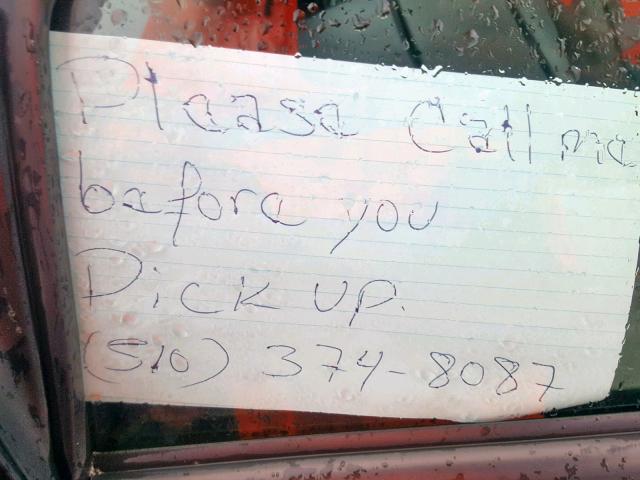 Please Call me
before you
Pick up.
(510) 374-8087